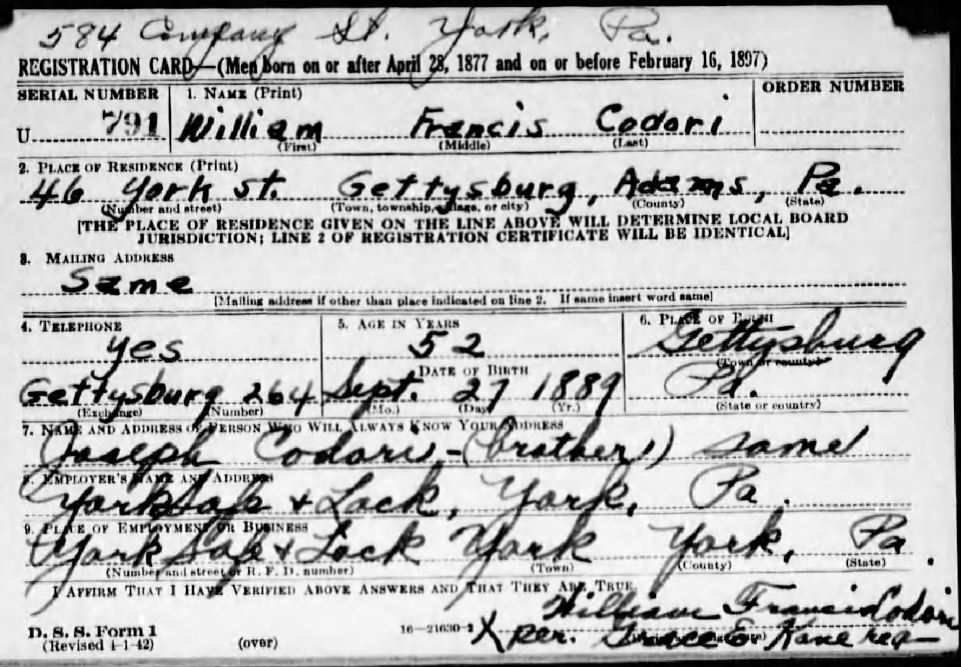 584 Company St. York, Pa.
REGISTRATION CARD—(Men born on or after April 28, 1877 and on or before February 16, 1897)
SERIAL NUMBER 1. NAME (Print) ORDER NUMBER
U 791 William Francis Codori
(First) (Middle) (Last)
2. PLACE OF RESIDENCE (Print)
46 York St. Gettysburg, Adams, Pa.
(Number and street) (Town, township, village, or city) (County) (State)
[THE PLACE OF RESIDENCE GIVEN ON THE LINE ABOVE WILL DETERMINE LOCAL BOARD
JURISDICTION; LINE 2 OF REGISTRATION CERTIFICATE WILL BE IDENTICAL]
3. MAILING ADDRESS
Same
[Mailing address if other than place indicated on line 2. If same insert word same]
4. TELEPHONE 5. AGE IN YEARS 6. PLACE OF BIRTH
yes 52 Gettysburg
DATE OF BIRTH (Town or county)
Gettysburg 264 Sept. 27 1889 Pa.
(Exchange) (Number) (Mo.) (Day) (Yr.) (State or country)
7. NAME AND ADDRESS OF PERSON WHO WILL ALWAYS KNOW YOUR ADDRESS
Joseph Codori - (brother) same
8. EMPLOYER'S NAME AND ADDRESS
York Safe + Lock, York, Pa.
9. PLACE OF EMPLOYMENT OR BUSINESS
York Safe + Lock York York, Pa.
(Number and street or R. F. D. number) (Town) (County) (State)
I AFFIRM THAT I HAVE VERIFIED ABOVE ANSWERS AND THAT THEY ARE TRUE.
William Francis Codori
D. S. S. Form 1 16—21630-2 X per. Grace E Kane reg
(Revised 4-1-42) (over)